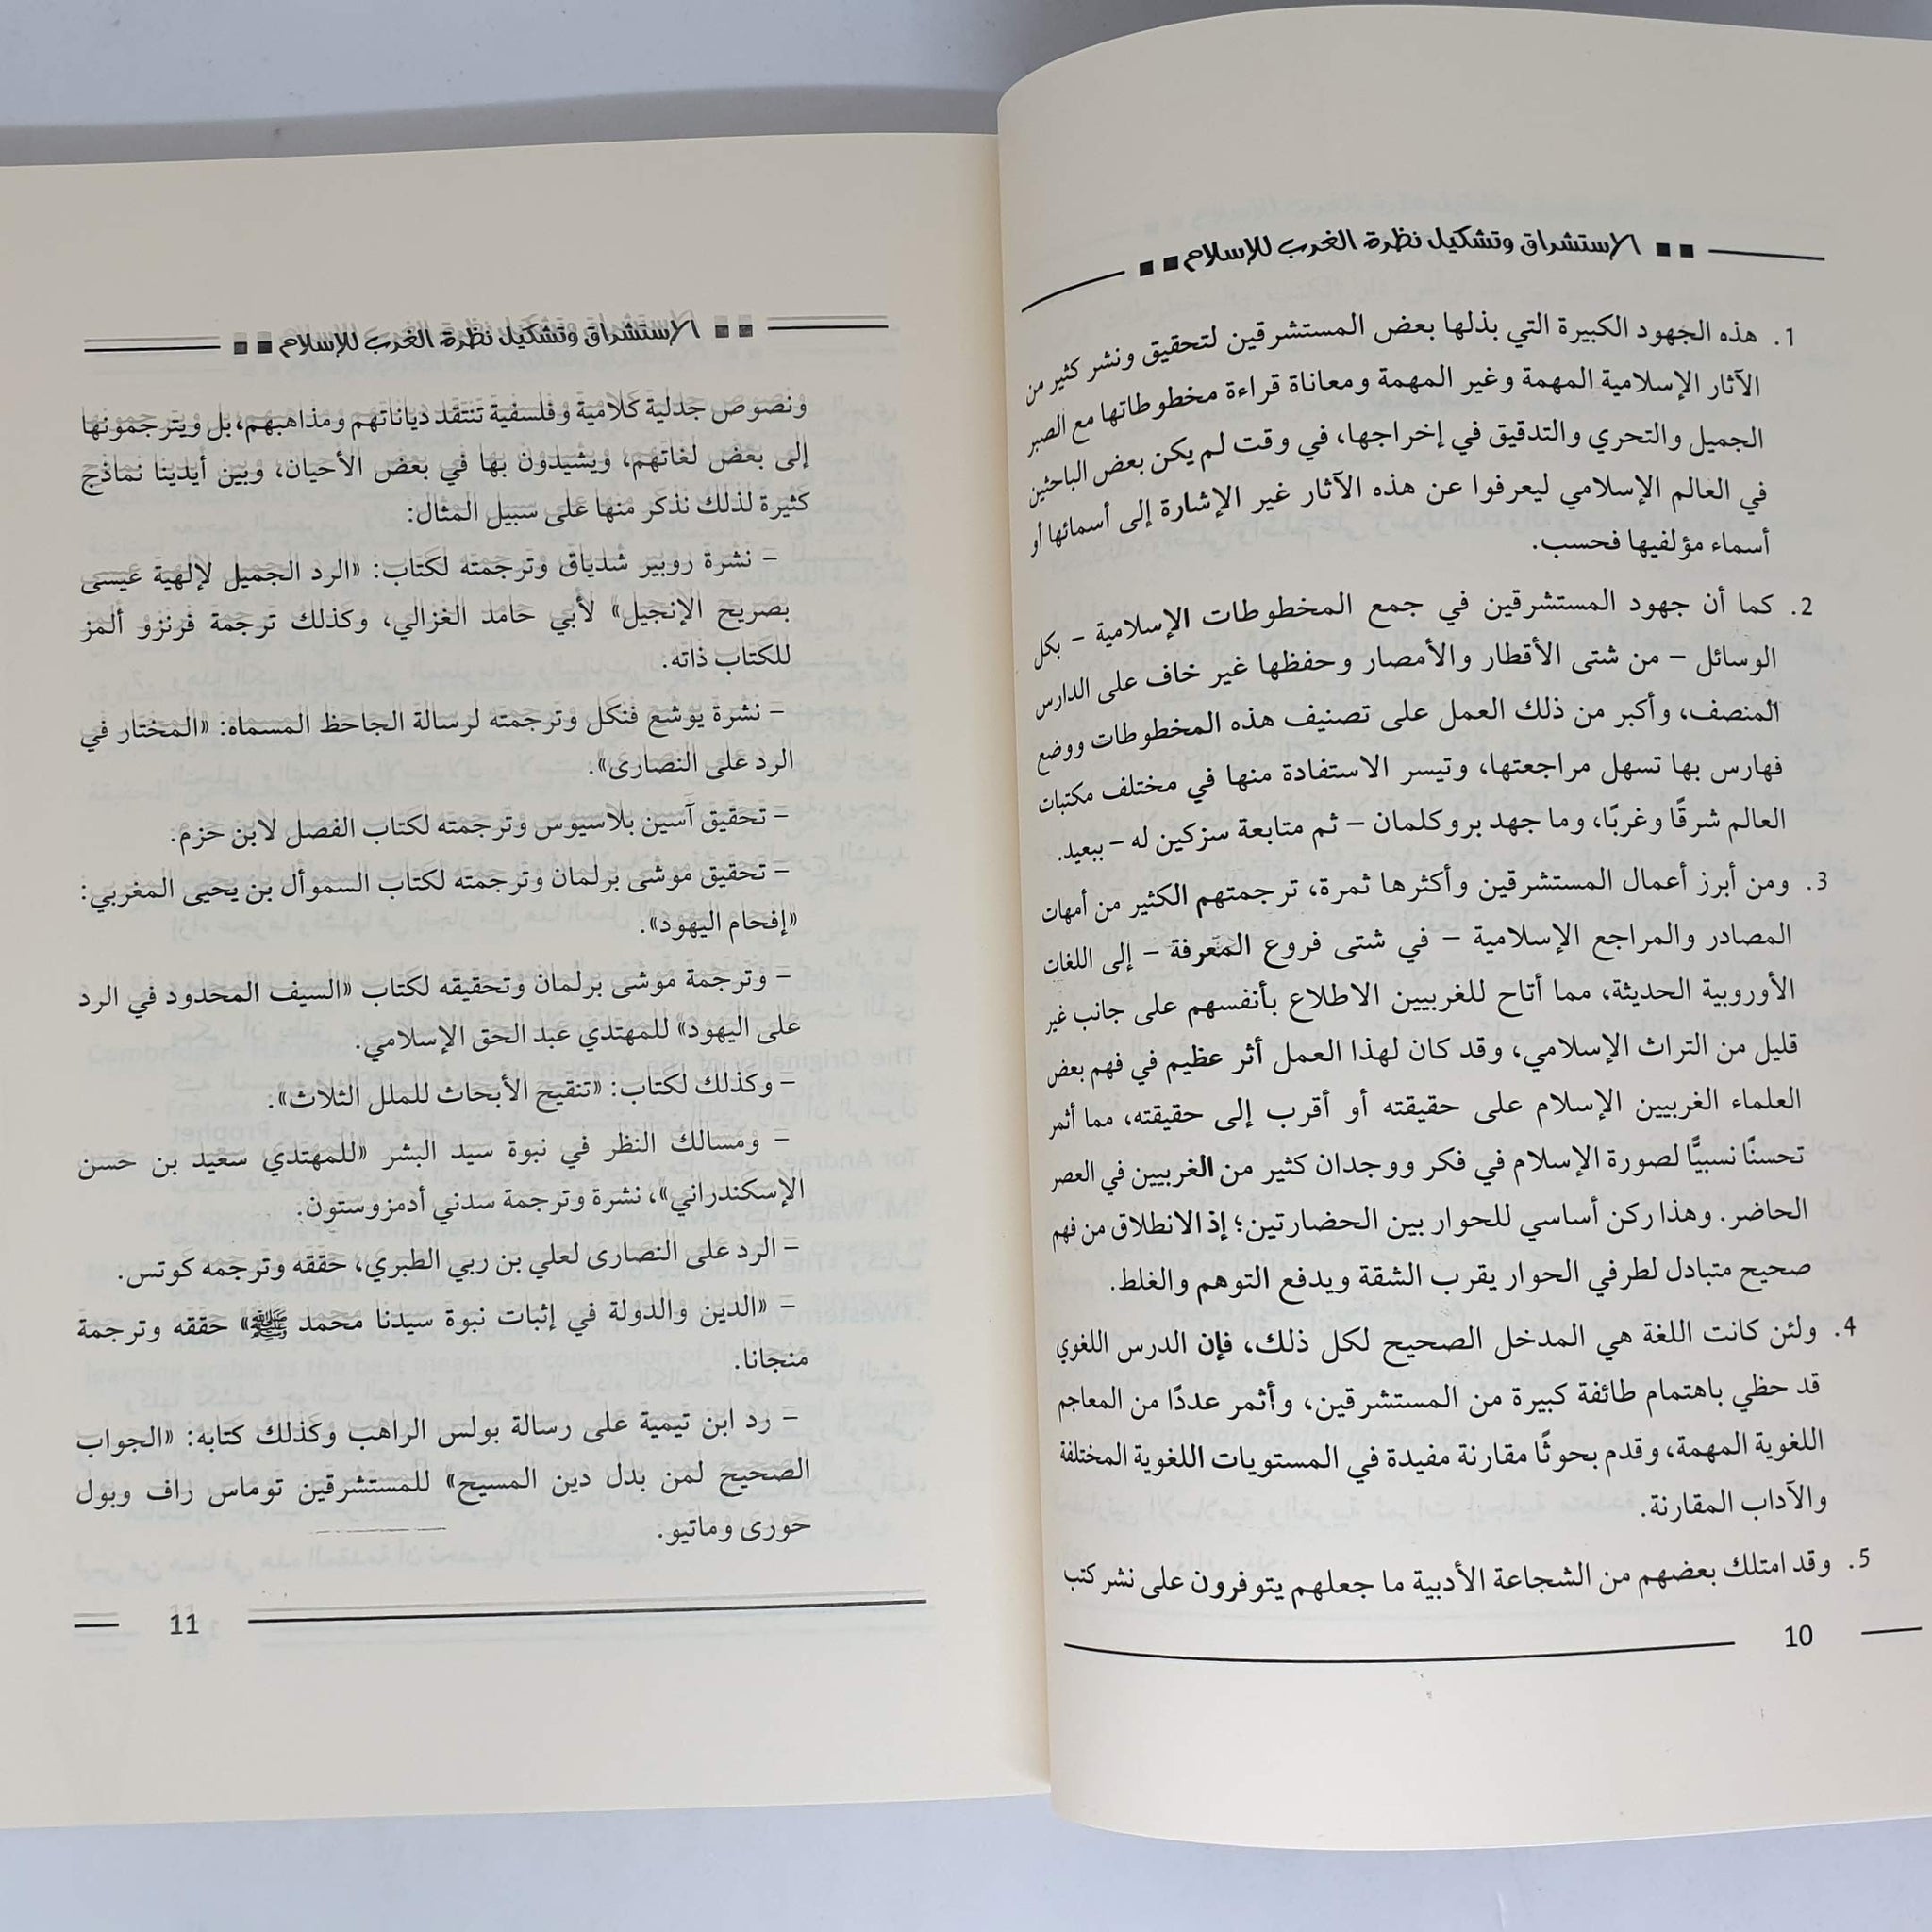 الاستشراق وتشكيل نظرة الغرب للإسلام
1. هذه الجهود الكبيرة التي بذلها بعض المستشرقين لتحقيق ونشر كثير من
الآثار الإسلامية المهمة وغير المهمة ومعاناة قراءة مخطوطاتها مع الصبر
الجميل والتحري والتدقيق في إخراجها، في وقت لم يكن بعض الباحثين
في العالم الإسلامي ليعرفوا عن هذه الآثار غير الإشارة إلى أسمائها أو
أسماء مؤلفيها فحسب.
2. كما أن جهود المستشرقين في جمع المخطوطات الإسلامية – بكل
الوسائل – من شتى الأقطار والأمصار وحفظها غير خاف على الدارس
المنصف، وأكبر من ذلك العمل على تصنيف هذه المخطوطات ووضع
فهارس بها تسهل مراجعتها، وتيسر الاستفادة منها في مختلف مكتبات
العالم شرقًا وغربًا، وما جهد بروكلمان – ثم متابعة سزكين له – ببعيد.
3. ومن أبرز أعمال المستشرقين وأكثرها ثمرة، ترجمتهم الكثير من أمهات
المصادر والمراجع الإسلامية – في شتى فروع المعرفة – إلى اللغات
الأوروبية الحديثة، مما أتاح للغربيين الاطلاع بأنفسهم على جانب غير
قليل من التراث الإسلامي، وقد كان لهذا العمل أثر عظيم في فهم بعض
العلماء الغربيين الإسلام على حقيقته أو أقرب إلى حقيقته، مما أثمر
تحسنًا نسبيًّا لصورة الإسلام في فكر ووجدان كثير من الغربيين في العصر
الحاضر. وهذا ركن أساسي للحوار بين الحضارتين؛ إذ الانطلاق من فهم
صحيح متبادل لطرفي الحوار يقرب الشقة ويدفع التوهم والغلط.
4. ولئن كانت اللغة هي المدخل الصحيح لكل ذلك، فإن الدرس اللغوي
قد حظي باهتمام طائفة كبيرة من المستشرقين، وأثمر عددًا من المعاجم
اللغوية المهمة، وقدم بحوثًا مقارنة مفيدة في المستويات اللغوية المختلفة
والآداب المقارنة.
5. وقد امتلك بعضهم من الشجاعة الأدبية ما جعلهم يتوفرون على نشر كتب
10
الاستشراق وتشكيل نظرة الغرب للإسلام
ونصوص جدلية كلامية وفلسفية تنتقد دياناتهم ومذاهبهم، بل ويترجمونها
إلى بعض لغاتهم، ويشيدون بها في بعض الأحيان، وبين أيدينا نماذج
كثيرة لذلك نذكر منها على سبيل المثال:
– نشرة روبير شدياق وترجمته لكتاب: «الرد الجميل لإلهية عيسى
بصريح الإنجيل» لأبي حامد الغزالي، وكذلك ترجمة فرنزو ألمز
للكتاب ذاته.
– نشرة يوشع فنكل وترجمته لرسالة الجاحظ المسماه: «المختار في
الرد على النصارى».
– تحقيق آسين بلاسيوس وترجمته لكتاب الفصل لابن حزم.
– تحقيق موشى برلمان وترجمته لكتاب السموأل بن يحيى المغربي:
«إفحام اليهود».
– وترجمة موشى برلمان وتحقيقه لكتاب «السيف المحدود في الرد
على اليهود» للمهتدي عبد الحق الإسلامي.
– وكذلك لكتاب: «تنقيح الأبحاث للملل الثلاث».
– ومسالك النظر في نبوة سيد البشر «للمهتدي سعيد بن حسن
الإسكندراني»، نشرة وترجمة سدني أدمزوستون.
– الرد على النصارى لعلي بن ربي الطبري، حققه وترجمه كوتس.
– «الدين والدولة في إثبات نبوة سيدنا محمد ﷺ» حققه وترجمة
منجانا.
– رد ابن تيمية على رسالة بولس الراهب وكذلك كتابه: «الجواب
الصحيح لمن بدل دين المسيح» للمستشرقين توماس راف وبول
حورى وماتيو.
11